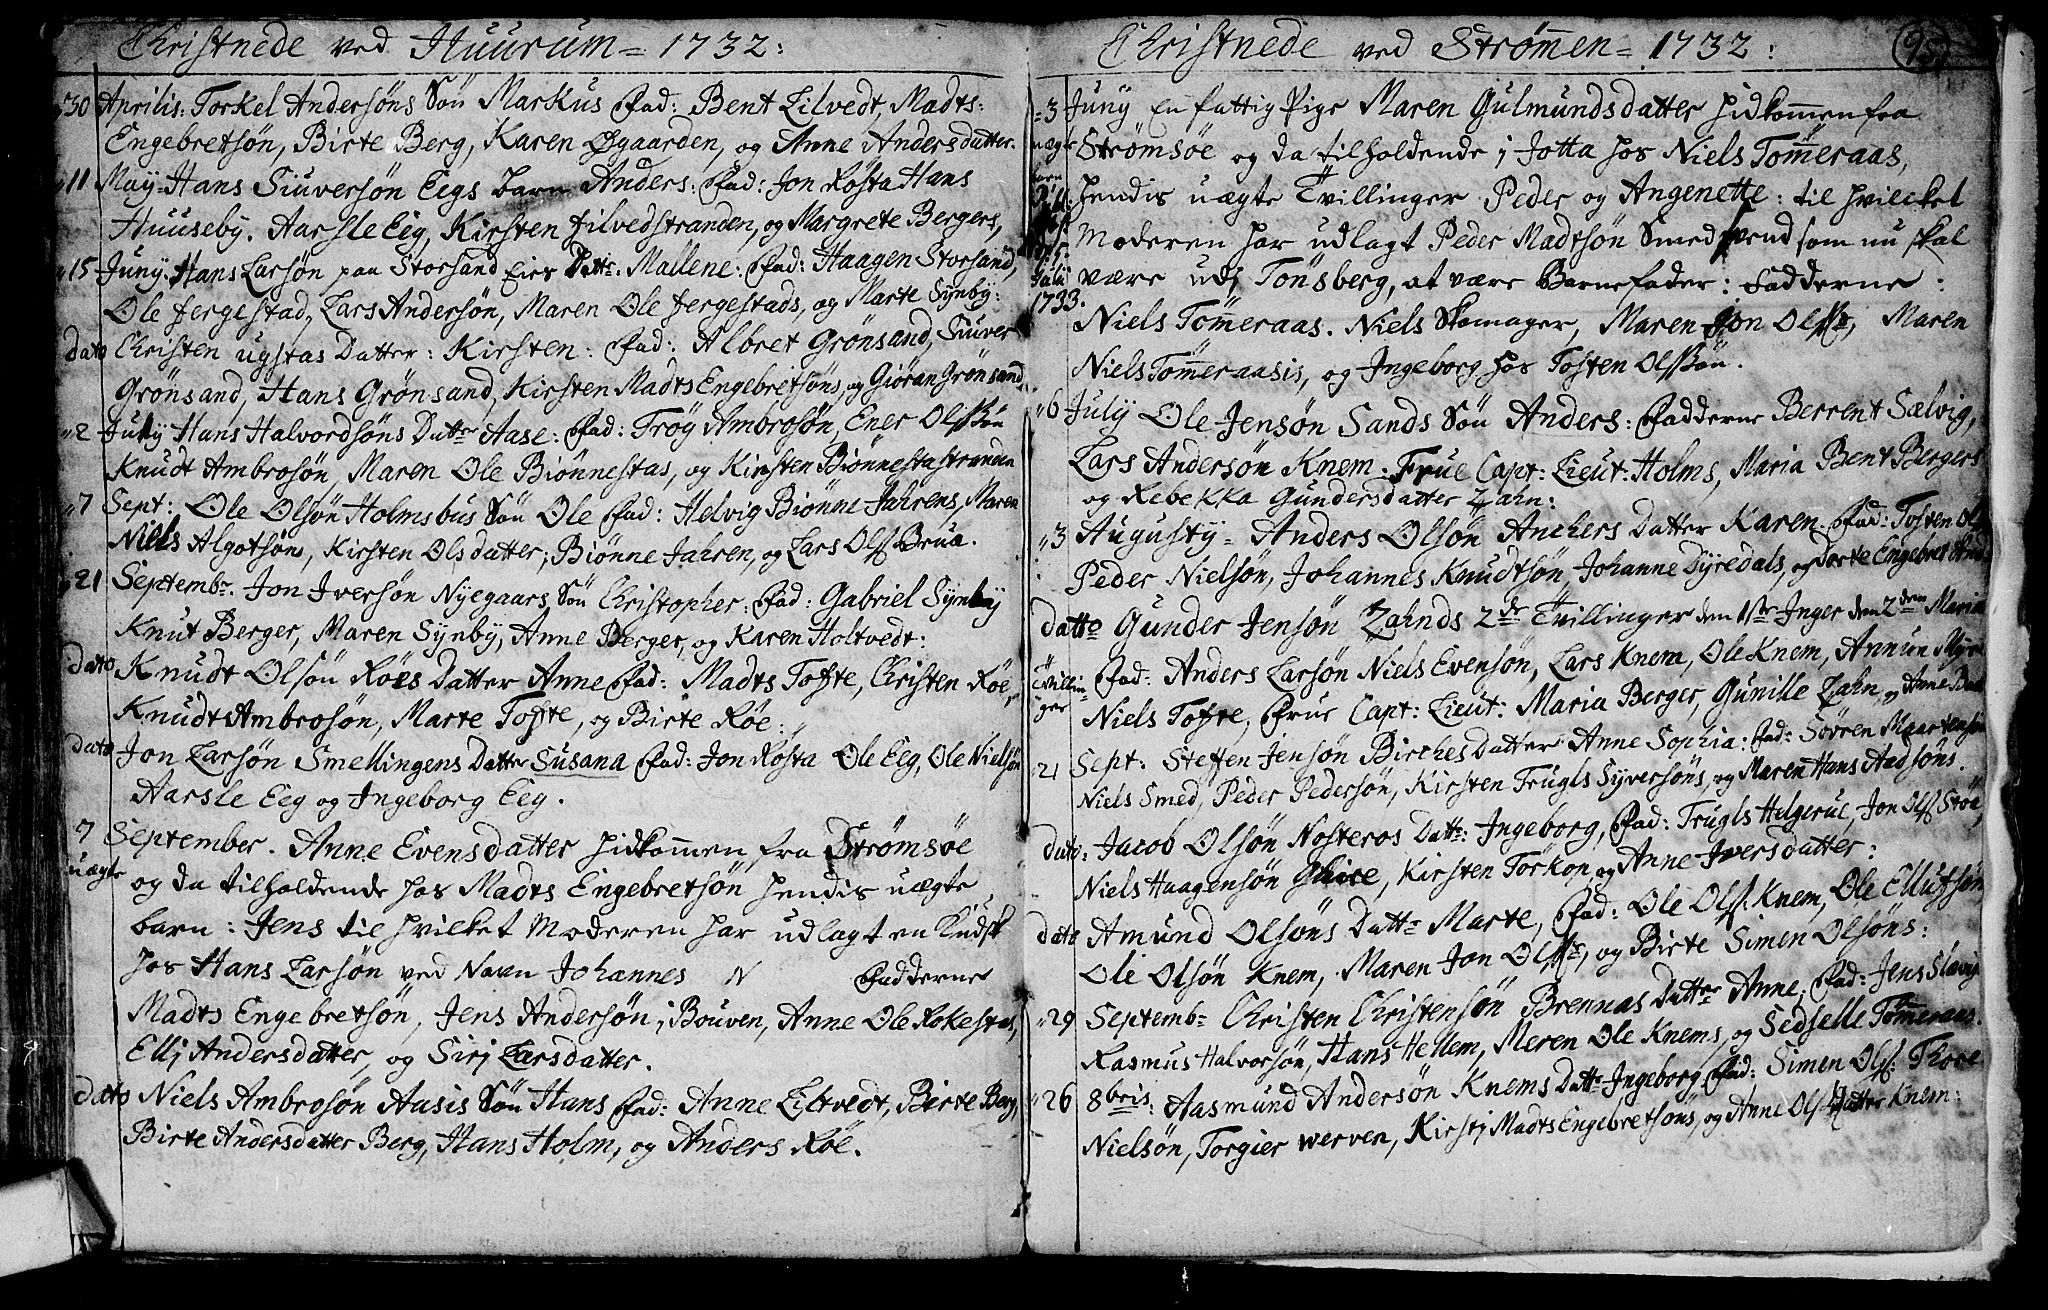 Christnede ved Huurum = 1732:
30 Aprilis: Torkel Andersøns Søn Markus Fad: Bent Lilvedt, Madts
Engebretsøn, Birte Berg, Karen Øgaarden, og Anne Andersdatter.
11 May. Hans Siuversøn Eegs barn Anders: Fad: Jon Røsta Hans
Huuseby. Aarsle Eeg, Kirsten Filvedstranden, og Margrete Bergers,
15 Juny. Hans Larsøn paa Storsand Eier Datt: Mallene: Fad: Haagen Storsand,
Ole Jergestad, Lars Andersøn, Maren Ole Jergestads, og Marte Synby:
dato Christen ugstas Datter: Kirsten: Fad: Albret Grönsand, Siuver
Grönsand, Hans Grönsand, Kirsten Madts Engebretsøns, og Giöran Grönsand
2 July Hans Halvordsøns Datter Aase: Fad: Tröy Ambrosøn, Ener Olssøn
Knudt Ambrosøn, Maren Ole Biønnestas, og Kirsten Biønnestastranden
7 Sept: Ole Olsøn Holmsbus Søn Ole Fad: Helvig Biønne Jahrens, Maren
Niels Algotsøns, Kirsten Olsdatter, Biønne Jahren, og Lars Ols Brua.
21 Septembr. Jon Iversøn Nyegaars Søn Christopher. Fad: Gabriel Synby
Knut Berger, Maren Synby, Anne Berger, og Karen Holtvedt:
dato Knudt Olsøn Röes Datter Anne Fad: Madts Tofte, Christen Röe,
Knudt Ambrosøn, Marte Tofte, og Birte Röe:
dato Jon Larsøn Smellingens Datter Susana Fad: Jon Røsta Ole Eeg, Ole Nielsøn
Aarsle Eeg og Ingeborg Eeg.
7 September. Anne Evensdatter hidkommen fra Strømsøe
uægte og da tilholdende hos Madts Engebretsøn hendis uægte
barn: Jens til hvilket Moderen har udlagt en Kudsk
hos Hans Larsøn ved Navn Johannes N Fadderne
Madts Engebretsøn, Jens Andersøn i Bouven, Anne Ole Rokestas,
Ellj Andersdatter, og Sirj Larsdatter.
dato Niels Ambrosøn Aasis Søn Hans Fad: Anne Liltvedt, Birte Berg,
Birte Andersdatter Berg, Hans Holm, og Anders Röe.
Christnede ved Strømmen = 1732:
3 Juny En fattig Pige Maren Gulmundsdatter hidkommen fra
uægte Strømsøe og da tilholdende i Jotta hos Niels Tømmeraas,
hendis uægte Tvillinger Peder og Angenette: til hvilcket
Moderen har udlagt Peder Madtsøn Smed svend som nu skal
July være udj Tønsberg, at være Barnefader: Fadderne:
1733. Niels Tømmeraas. Niels Skomager, Maren Jon Olss, Maren
Niels Tømmeraasis, og Ingeborg hos Tosten Olssøn.
6 July Ole Jensøn Sands Søn Anders: Fadderne Berrent Sælvig,
Lars Andersøn Knem: Frue Capt: Lieut: Holms, Maria Bent Bergers
og Rebekka Gundersdatter Zahn:
3 Augusty = Anders Olsøn Anchers Datter Karen. Fad: Tosten Ols
Peder Nielsøn, Johannes Knudtsøn, Johanne Dyredals, og Dorte Engebret
datto Gunder Jensøn Zahnds 2de Tvillinger den 1ste Inger den 2den Maria
Tvillinger Fad: Anders Larsøn Niels Evensøn, Lars Knem, Ole Knem, Annun
Niels Tofte, Frue Capt: Lieut: Maria Berger, Gunille Zahn, og Anne
21 Sept: Steffen Jensøn Birches Datter Anne Sophia: Fad: Søvren Maartensøn
Niels Smed, Peder Pedersøn, Kirsten Trugls Syversøns, og Maren Hans Aadsøns.
dato: Jacob Olsøn Nosteros Datt: Ingeborg, Fad: Trugls Helgerue, Jon Ols Støa,
Niels Haagensøn Ghice, Kirsten Torkop, og Anne Iversdatter:
dato Amund Olsøns Datt Marte, Fad: Ole Ols Knem, Ole Ellufsøn
Ole Olsøn Knem, Maren Jon Olss, og Birte Simen Olsøns:
29 Septemb= Christen Christensøn Brennas Datter Anne. Fad: Jens Slevig
Rasmus Halvorsøn, Hans Hellem, Meren Ole Knems, og Sedselle Tømmeraas.
26 8bris. Aasmund Andersøn Knems Datt= Ingeborg Fad: Simen Ols: Thore
Nielsøn, Torgier werven, Kirstj Madts Engebretsøns, og Anne Ols Datter Knem: